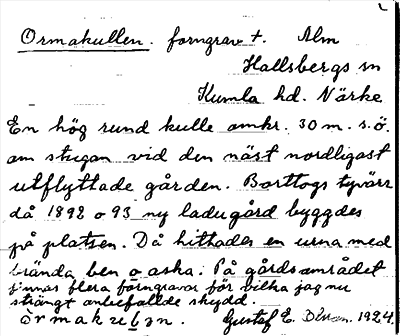 Ormakullen. forngrav +. Alm
Hallsbergs sn
Kumla hd. Närke
En hög rund kulle omkr. 30 m. s.ö.
om stugan vid den näst nordligast
utflyttade gården. Borttogs tyvärr
då 1892 o 93 ny ladugård byggdes
på platsen. Då hittades en urna med
brända ben o aska. På gårdsområdet
finnas flera forngravar för vilka jag nu
strängt anbefallde skydd.
Gustaf E. Olsson. 1924.